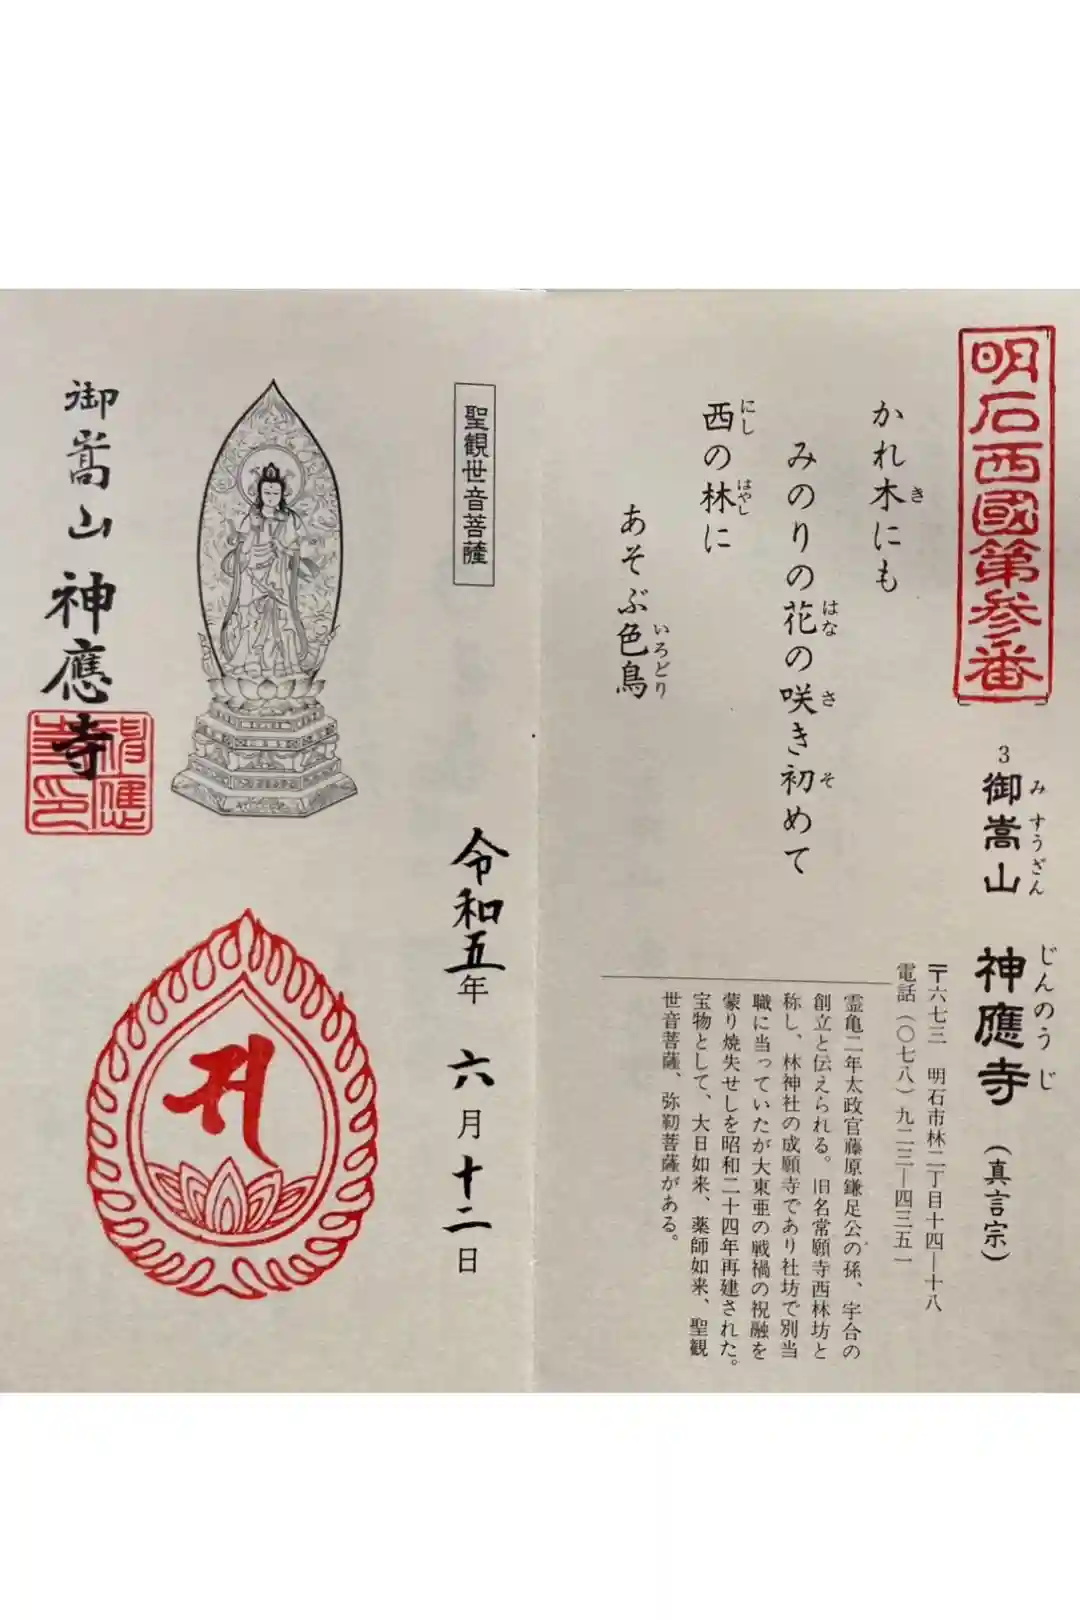 明石西國第参番
3 御嵩山 神應寺 (真言宗)
みすうざん じんのうじ
〒六七三 明石市林二丁目十四―十八
電話 (〇七八) 九二三―四三五一
かれ木にも
き
みのりの花の咲き初めて
はな さ そ
西の林に
にし はやし
あそぶ色鳥
いろどり
霊亀二年太政官藤原鎌足公の孫、宇合の
創立と伝えられる。旧名常願寺西林坊と
称し、林神社の成願寺であり社坊で別当
職に当っていたが大東亜の戦禍の祝融を
蒙り焼失せしを昭和二十四年再建された。
宝物として、大日如来、薬師如来、聖観
世音菩薩、弥勒菩薩がある。
聖観世音菩薩
令和五年 六月十二日
御嵩山 神應寺
神應寺印